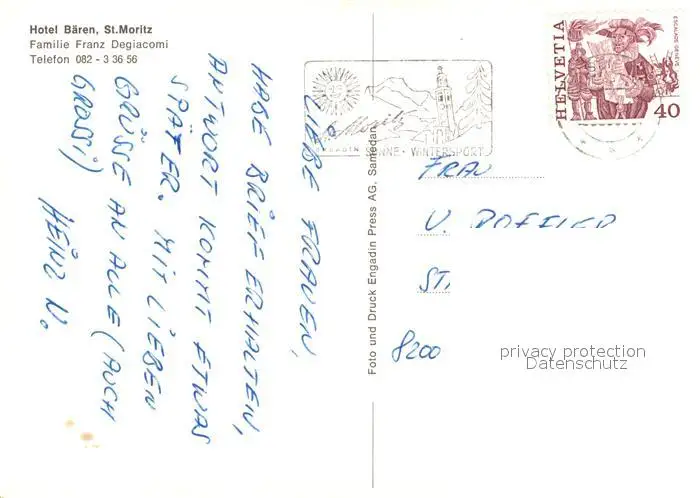 Hotel Bären, St.Moritz
Familie Franz Degiacomi
Telefon 082 - 3 36 56
LIEBE FRAUEN,
HABE BRIEF ERHALTEN,
ANTWORT KOMMT ETWAS
SPÄTER. MIT LIEBEN
GRÜSSE AN ALLE (AUCH
GROSSI)
HEINZ V.
Foto und Druck Engadin Press AG, Samedan
St. Moritz
ENGADIN SONNE · WINTERSPORT
HELVETIA
ESCALADE GENÈVE
40
FRAU
V.
ST.
8200
privacy protection
Datenschutz